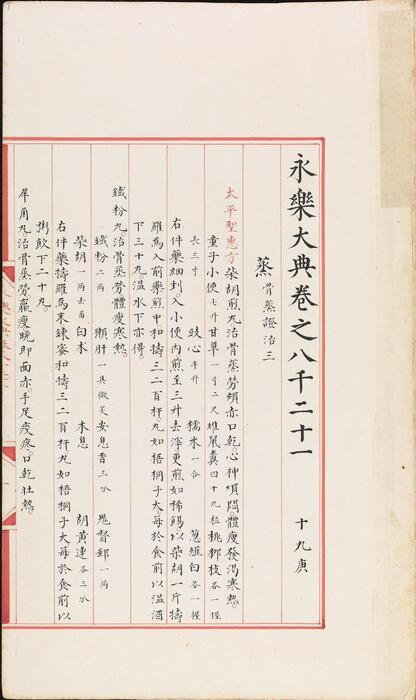 永樂大典卷之八千二十一　十九庚
蒸 骨蒸證治三
太平聖惠方柴胡煎丸治骨蒸勞頰赤口乾心神煩悶體瘦發渴寒熱
童子小便七升甘草一寸二尺雄鼠糞四十九粒桃柳枝各一握
長三寸　豉心半升　糯米一合　葱薤白各一握
右件藥細剉入小便內煎至三升去滓更煎如稀餳以柴胡一斤擣
羅為末入前藥煎中和擣三二百杵丸如梧桐子大每於食前以温酒
下三十九温水下亦得
鐵粉丸治骨蒸勞體瘦寒熱
鐵粉二兩　獺肝一具微炙安息香三分　鬼督郵一兩
柴胡一兩去苗白木　木香　胡黄連各三分
右件藥擣羅為末鍊蜜和擣三二百杵丸如梧桐子大每於食前以
粥飲下二十九
犀角丸治骨蒸勞羸瘦晚即面赤手足疼口乾壯熱